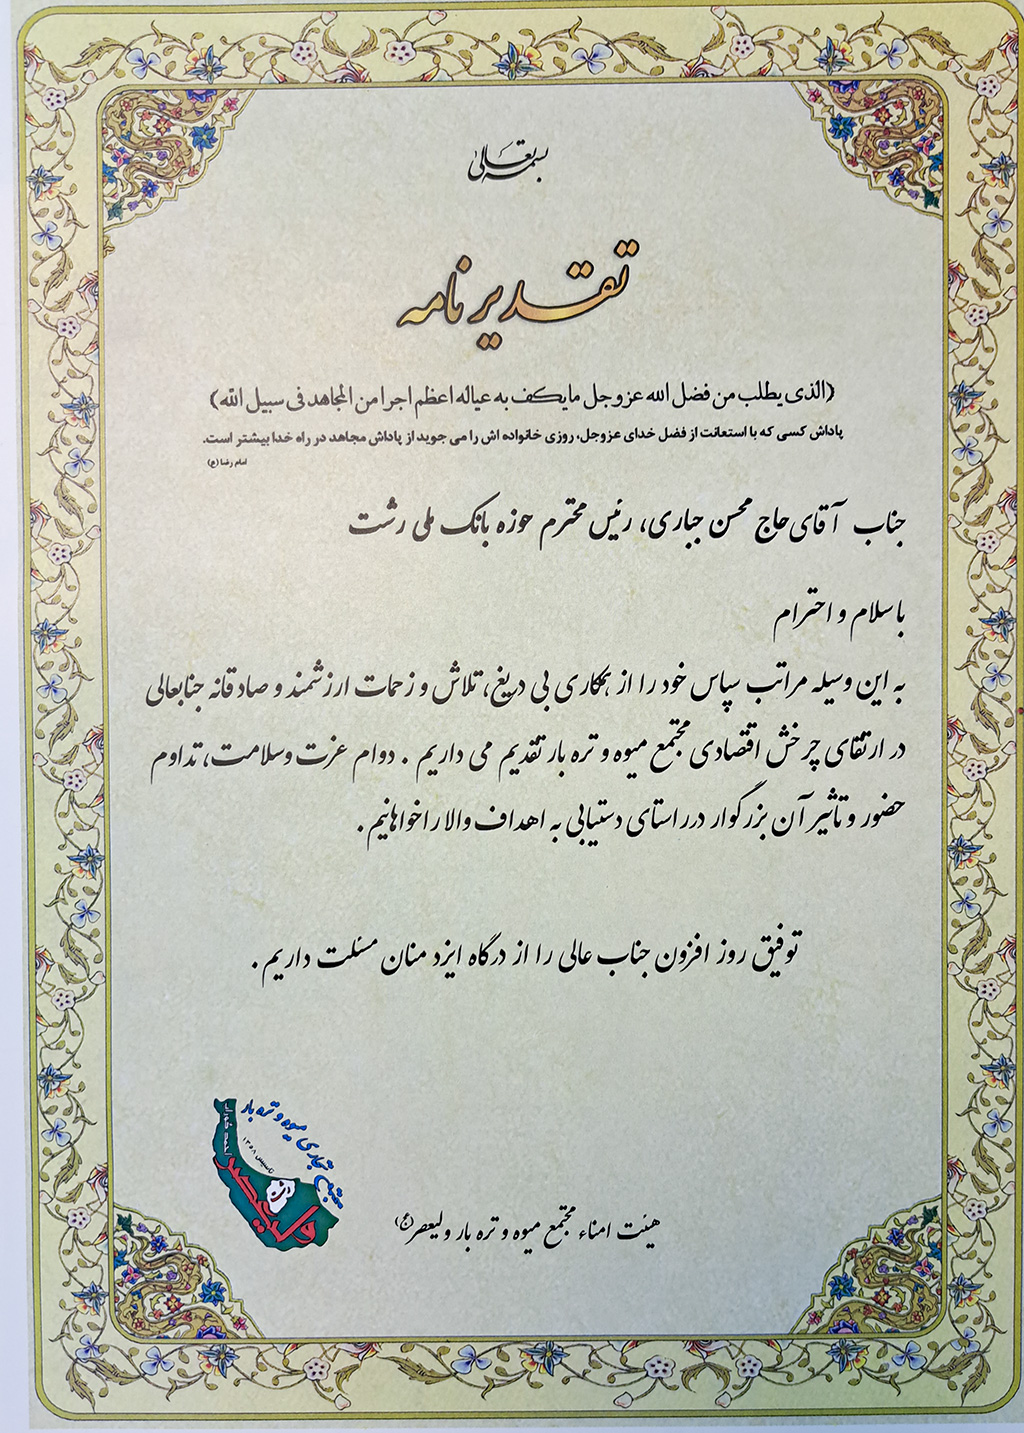 بسمه تعالی
تقدیر نامه
(الذی یطلب من فضل الله عزوجل مایکف به عیاله اعظم اجرا من المجاهد فی سبیل الله)
پاداش کسی که با استعانت از فضل خدای عزوجل، روزی خانواده اش را می جوید از پاداش مجاهد در راه خدا بیشتر است.
امام رضا (ع)
جناب آقای حاج محسن جباری، رئیس محترم حوزه بانک ملی رشت
با سلام و احترام
به این وسیله مراتب سپاس خود را از همکاری بی دریغ، تلاش و زحمات ارزشمند و صادقانه جنابعالی
در ارتقای چرخش اقتصادی مجتمع میوه و تره بار تقدیم می داریم . دوام عزت و سلامت، تداوم
حضور و تاثیر آن بزرگوار در راستای دستیابی به اهداف والا را خواهانیم .
توفیق روز افزون جناب عالی را از درگاه ایزد منان مسئلت داریم .
مجتمع تجاری میوه و تره بار
تاسیس ۱۳۵۸
رشت
ولیعصر
هیئت امناء مجتمع میوه و تره بار ولیعصر (عج)